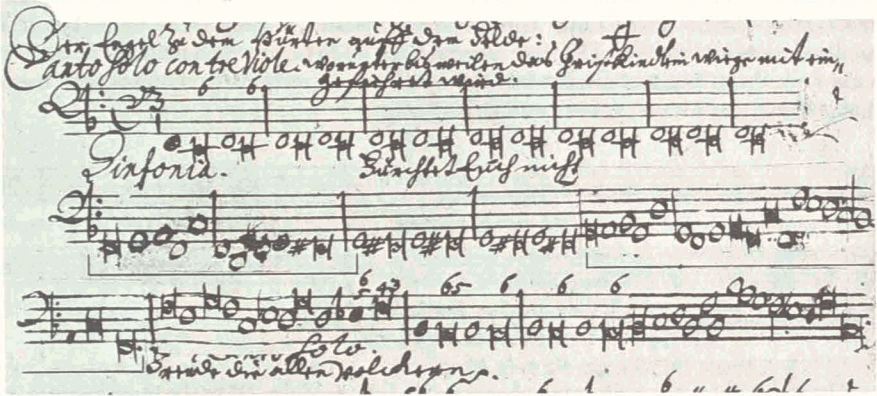 Der Engel zu den Hürten auff dem felde:
Canto solo con tre Viole. worunter bisweilen des Christkindlein wiege mit ein=
geführet wird.
6 6
Sinfonia. Fürchtet Euch nicht
6 5 43 65 6 6 6
Solo.
freude die allen volckern